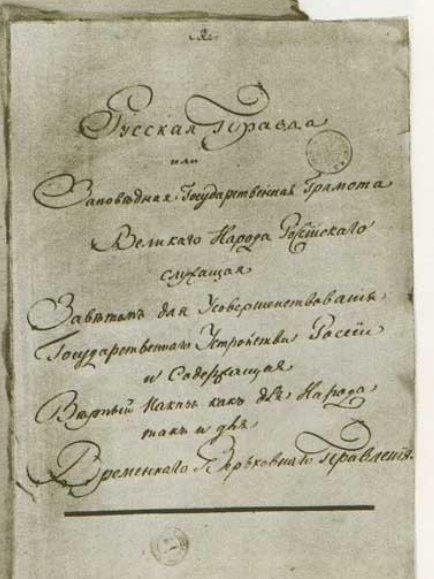 Русская Правда
или
Заповѣдная Государственная Грамота
Великаго Народа Россійскаго
служащая
Завѣтомъ для Усовершенствованія
Государственнаго Устройства Россіи
и Содержащая
Вѣрный Наказъ какъ для Народа
такъ и для
Временнаго Верьховнаго Правленія.